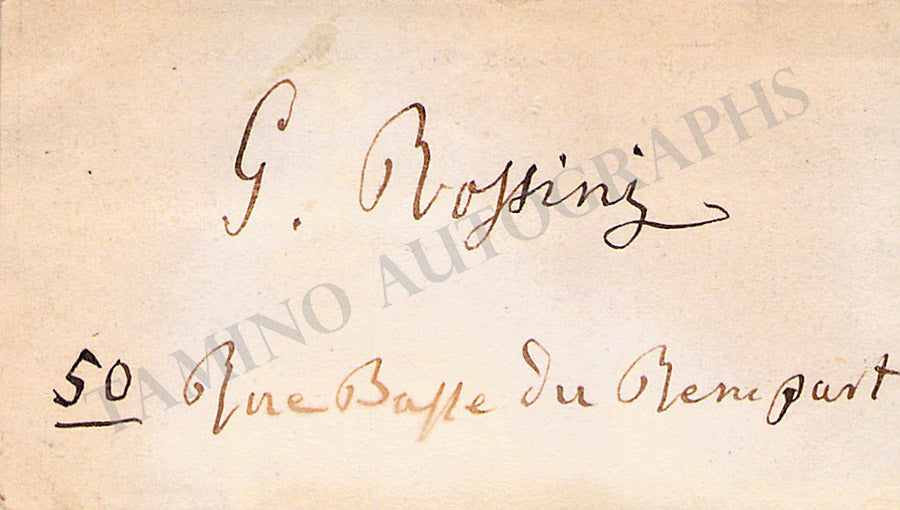 G. Rossini
TAMINO AUTOGRAPHS
50 Rue Basse du Rempart